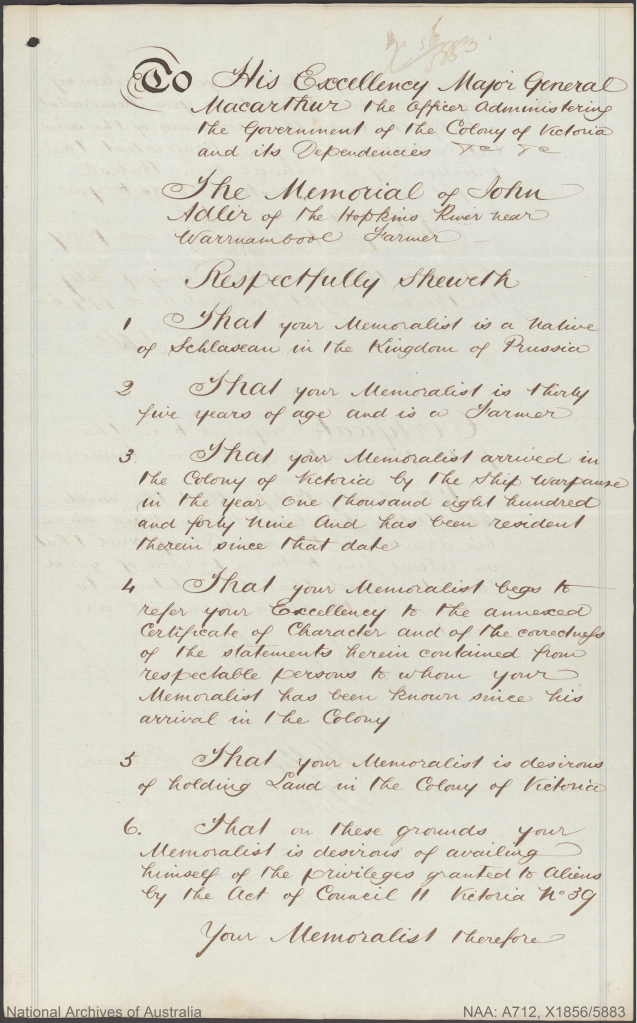 To His Excellency Major General
Macarthur the Officer Administering
the Government of the Colony of Victoria
and its Dependencies &c &c
The Memorial of John
Adler of the Hopkins River near
Warrnambool Farmer
Respectfully Sheweth
1 That your Memoralist is a Native
of Schlasean in the Kingdom of Prussia
2 That your Memoralist is thirty
five years of age and is a Farmer
3 That your Memoralist arrived in
the Colony of Victoria by the Ship Warpause
in the year One thousand eight hundred
and forty Nine And has been resident
therein since that date
4 That your Memoralist begs to
refer your Excellency to the annexed
Certificate of Character and of the correctness
of the statements herein contained from
respectable persons to whom your
Memoralist has been known since his
arrival in the Colony
5 That your Memoralist is desirous
of holding Land in the Colony of Victoria
6. That on these grounds your
Memoralist is desirous of availing
himself of the privileges granted to Aliens
by the Act of Council 11 Victoria No 39
Your Memoralist therefore
National Archives of Australia
NAA: A712, X1856/5883